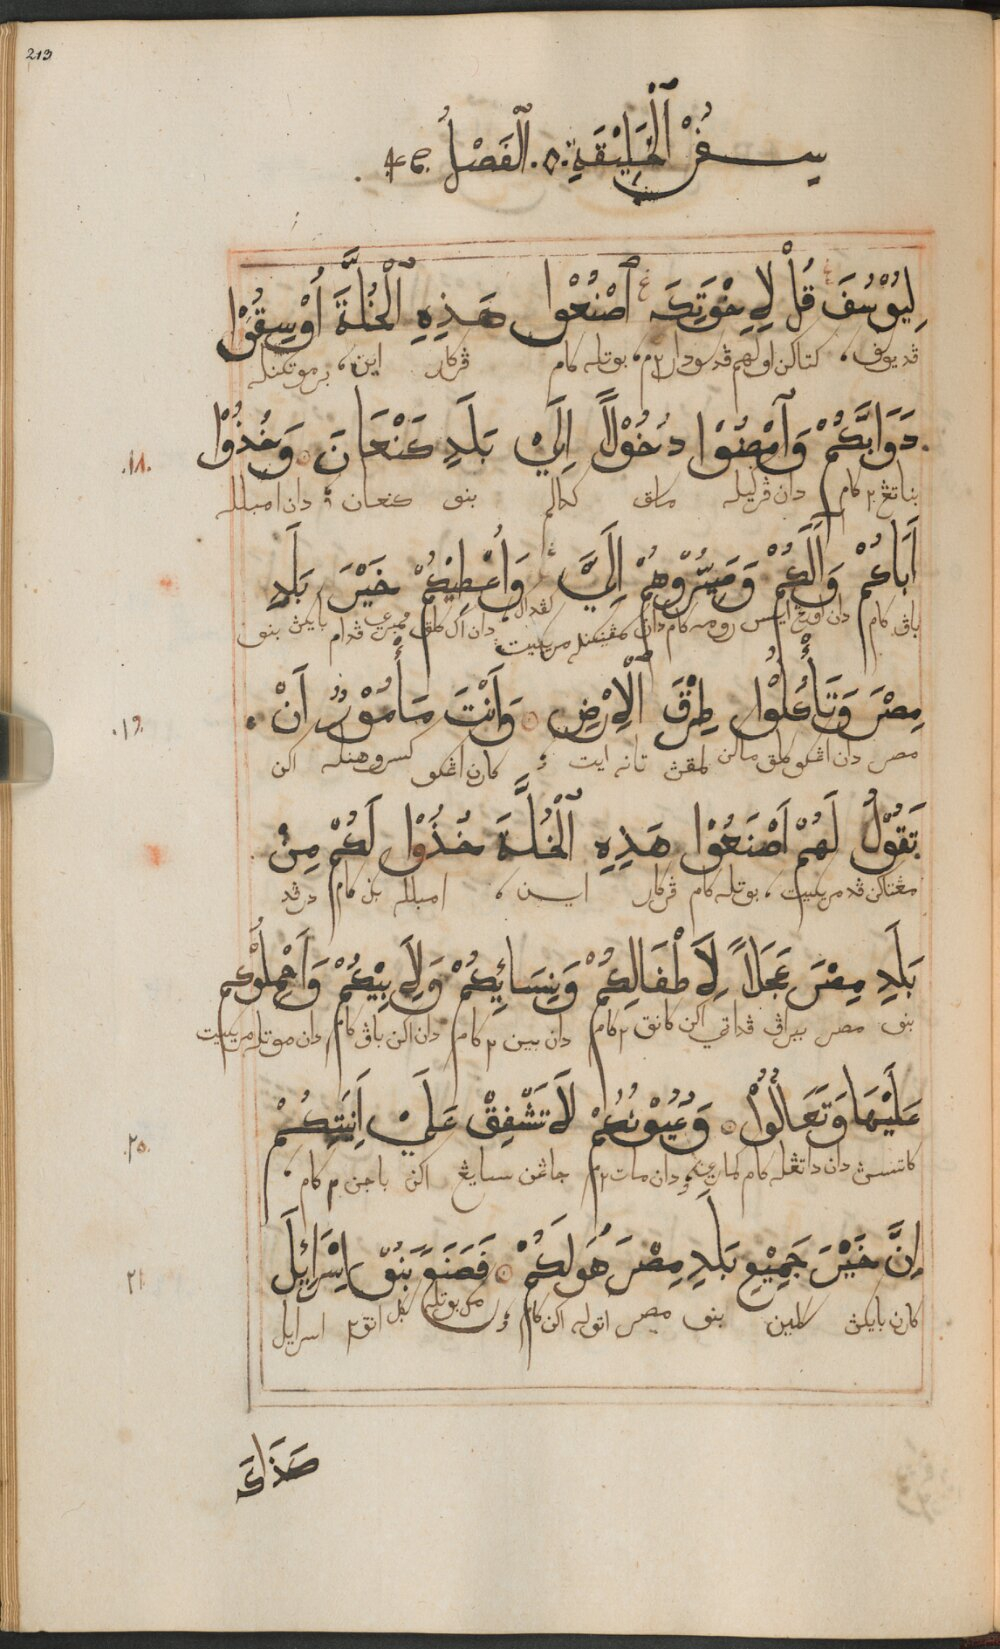 213
سِفْرُ ٱلْخَلِيْقَةِ. ٱلْفَصْلُ ٤٥.
لِيُوْسُفَ قُلْ لِإِخْوَتِكَ ٱصْنَعُوْا هَذِهِ ٱلْخُلَّةَ أُوْسِقُوْا
قد يوسف، كتاكن اولهم قد سودار٢م، بوتله كام ڤركار اين، برموتكنله
.١٨. دَوَابَّكُمْ وَٱمْضُوْا دُخُوْلًا إِلَيْ بَلَدِ كَنْعَانَ وَخُذُوْا
بناتڠ٢ كام دان ڤركيله ماسق كدالم بنو كنعان دان امبلله
أَبَاكُمْ وَٱلَكُمْ وَمَسِيْرُوْهُمْ إِلَيَّ وَأُعْطِيْكُمْ خَيْرَ بَلَدِ
باڤ كام دان ايسي رومه كام دان كڤداك دان اك ممبري بايكن بنو
.١٩. مِصْرَ وَتَأْكُلُوْا طِرْقَ ٱلْاِرْضِ وَأَنْتَ مَأْمُوْرٌ أَنْ
مصر دان اڠكو ماكن لمقن تانه ايت كارن اڠكو اكن
تَقُوْلُ لَهُمْ اَصْنَعُوْا هَذِهِ ٱلْخُلَّةَ خُذُوْا لَكُمْ مِنْ
مڠتاكن قد مريكئيت، بوتله كام ڤركار اين، امبلله كام درڤد
بَلَدِ مِصْرَ عَجَلاً لِأَطْفَالِكُمْ وَنِسَائِكُمْ وَلِأَبِيْكُمْ وَاَحْمِلُوْكُم
بنو مصر ڤداتي اكن كانق٢ كام دان بين٢ كام دان اكن باڤ كام دان موتله مريكئيت
.٢٠. عَلَيْهَا وَتَعَالُوْا وَعُيُوْنُكُمْ لَا تَشْفِقْ عَلَيْ اَنِيَتِكُمْ
كاتسن دان داتڠله كام كماري دان مات٢م جاڠن سايڠ اكن باجن٢ كام
٢١. اِنَّ خَيْرَ جَمِيْعِ بَلَدِ مِصْرَ هُوَ لَكُمْ فَصَنَعَ بَنُوْ اِسْرَائِلَ
كارن بايكن بنو مصر ايتوله اكن كام انق٢ اسرايل